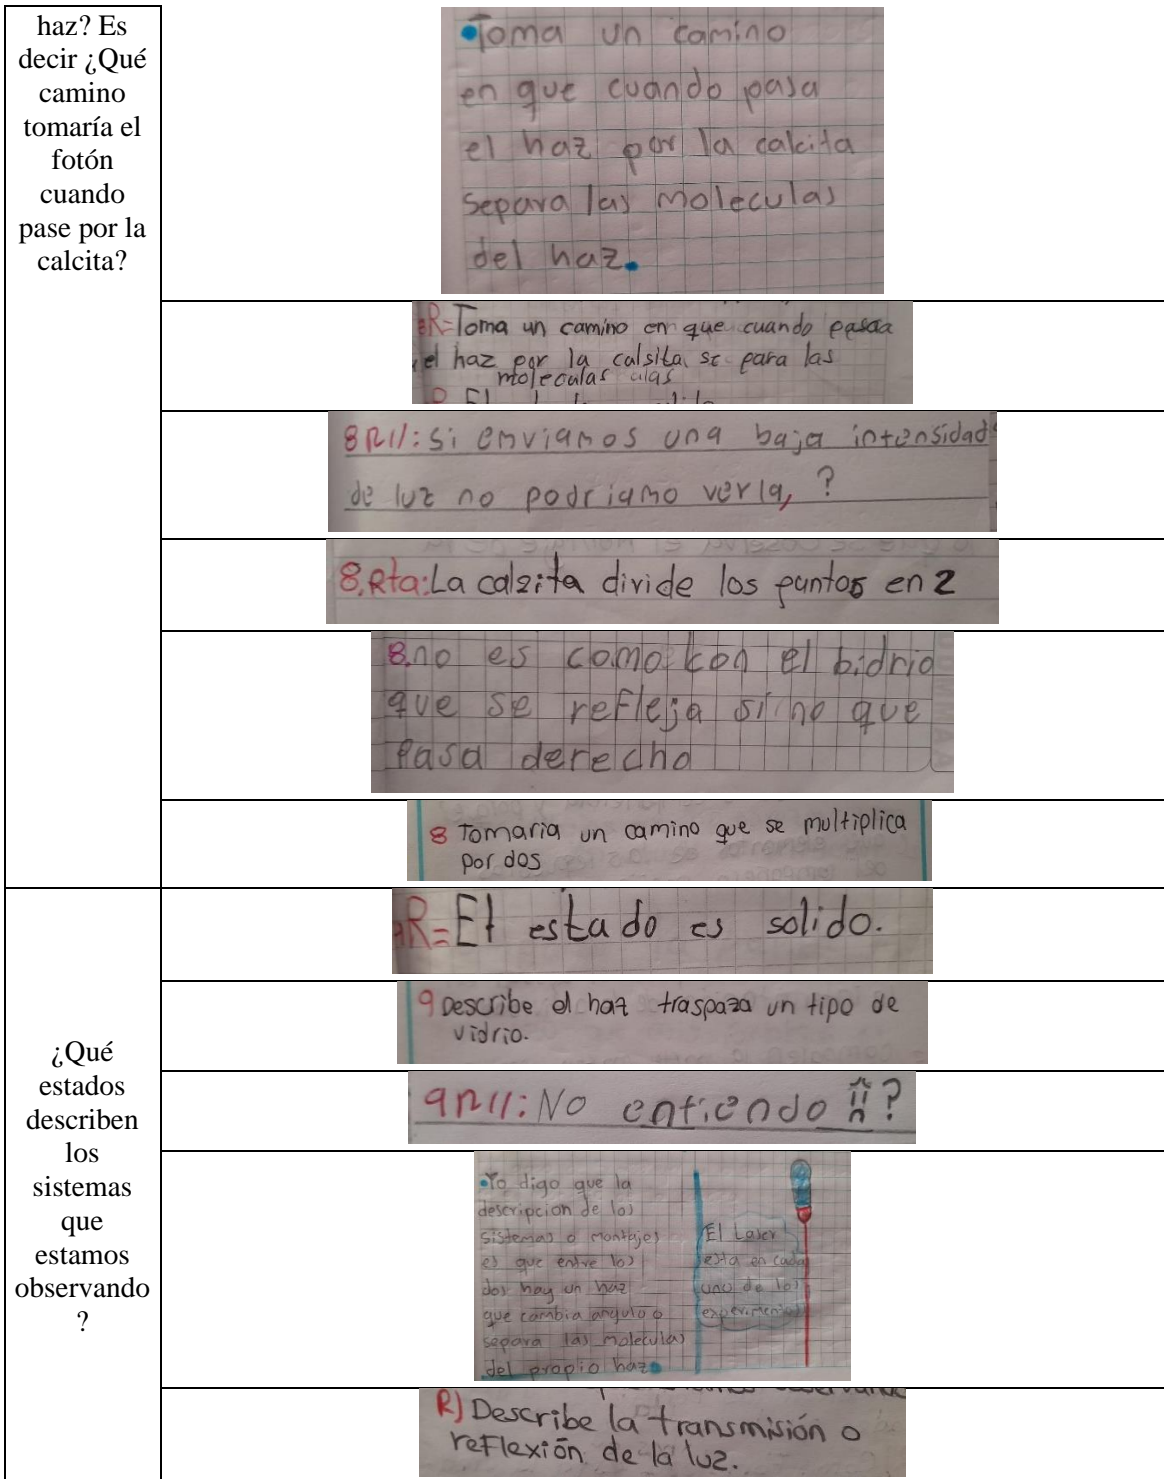 haz? Es
decir ¿Qué
camino
tomaría el
fotón
cuando
pase por la
calcita?
Toma un camino
en que cuando pasa
el haz por la calcita
separa las moleculas
del haz.
R=Toma un camino en que cuando pasaa
el haz por la calsita se para las
moleculas
8R//: si enviamos una baja intensidad
de luz no podriamo verla, ?
8.Rta: La calzita divide los puntos en 2
8.no es como kon el bidrio
que se refleja si no que
pasa derecho
8 Tomaria un camino que se multiplica
por dos
¿Qué
estados
describen
los
sistemas
que
estamos
observando
?
9R=El estado es solido.
9 Describe el haz traspaza un tipo de
vidrio.
9R//: No entiendo ?
Yo digo que la
descripcion de los
sistemas o montajes
es que entre los
dos hay un haz
que cambia angulo o
separa las moleculas
del propio haz
El Laser
esta en cada
uno de los
experimentos
R) Describe la transmisión o
reflexión de la luz.